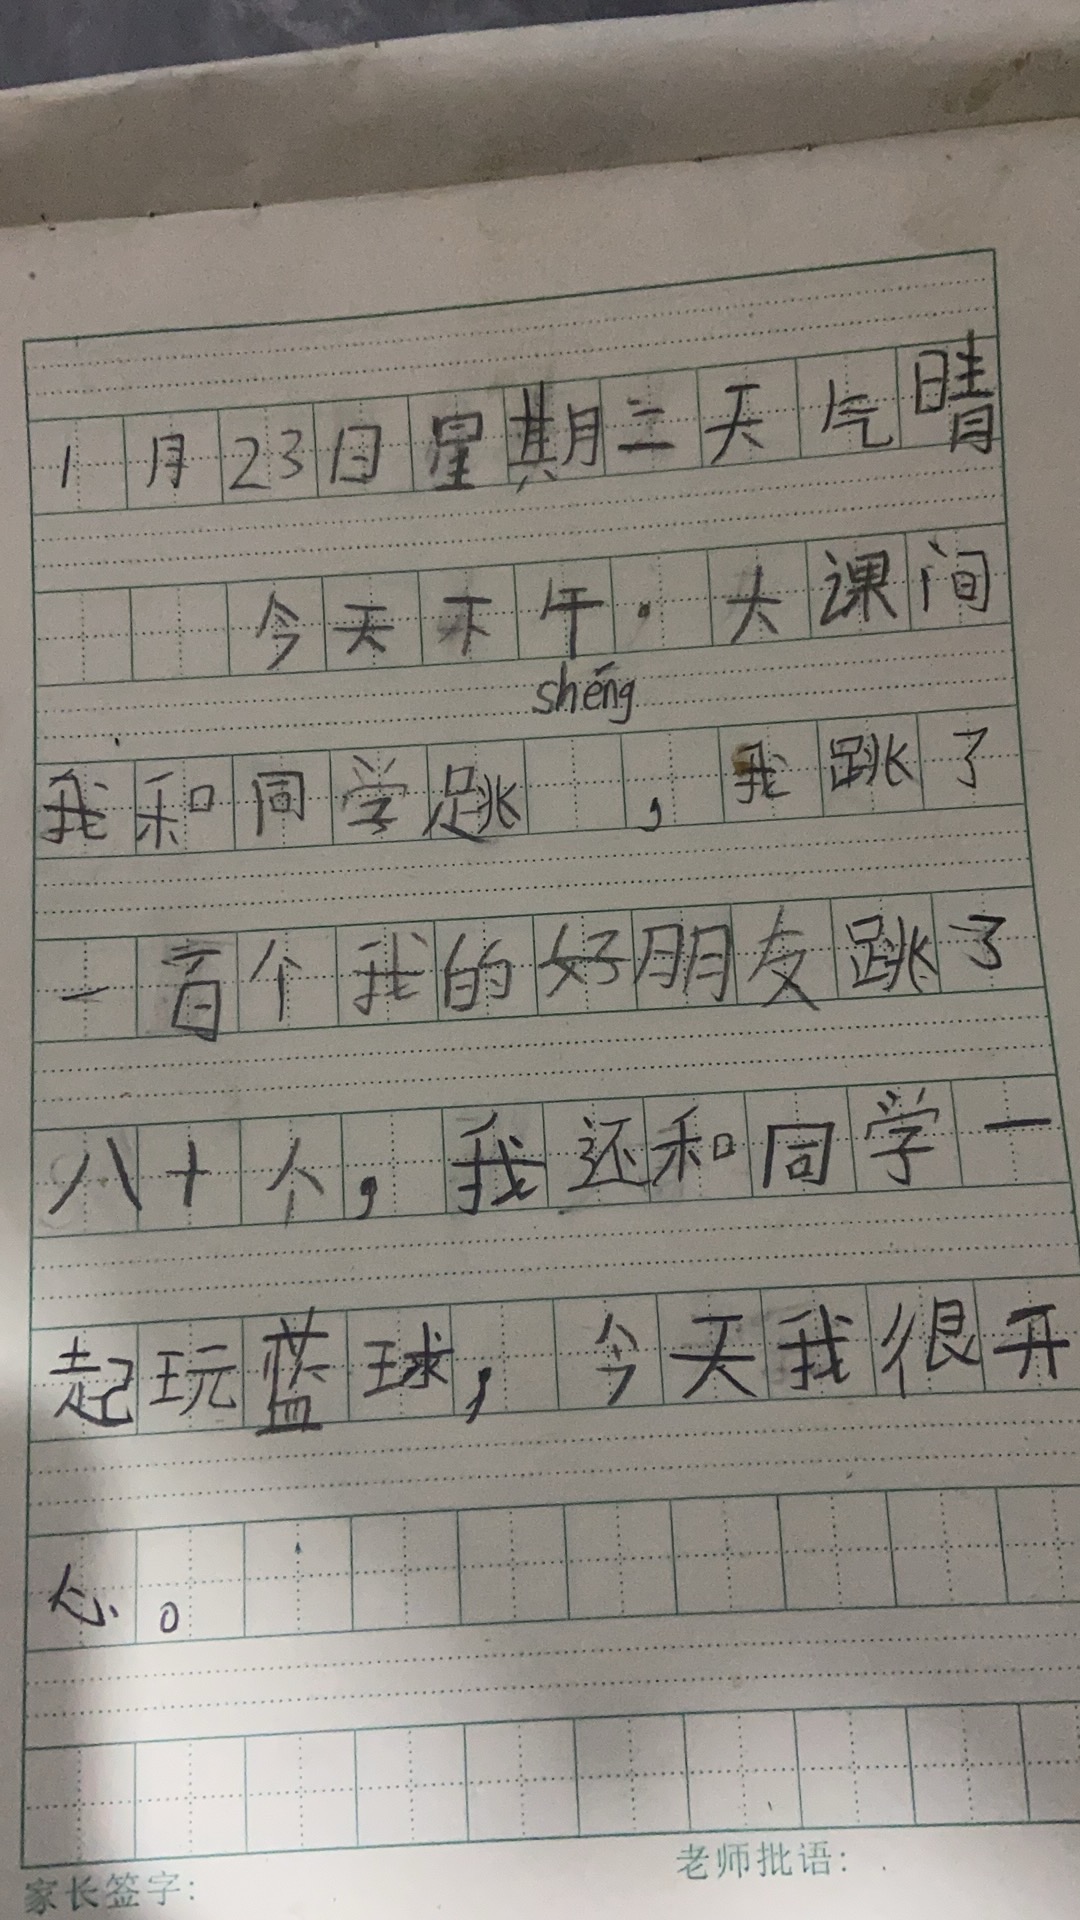 1月23日星期二天气晴
今天下午·大课间
shéng
我和同学跳 ，我跳了
一百个我的好朋友跳了
八十个，我还和同学一
起玩蓝球，今天我很开
心。
家长签字：
老师批语：